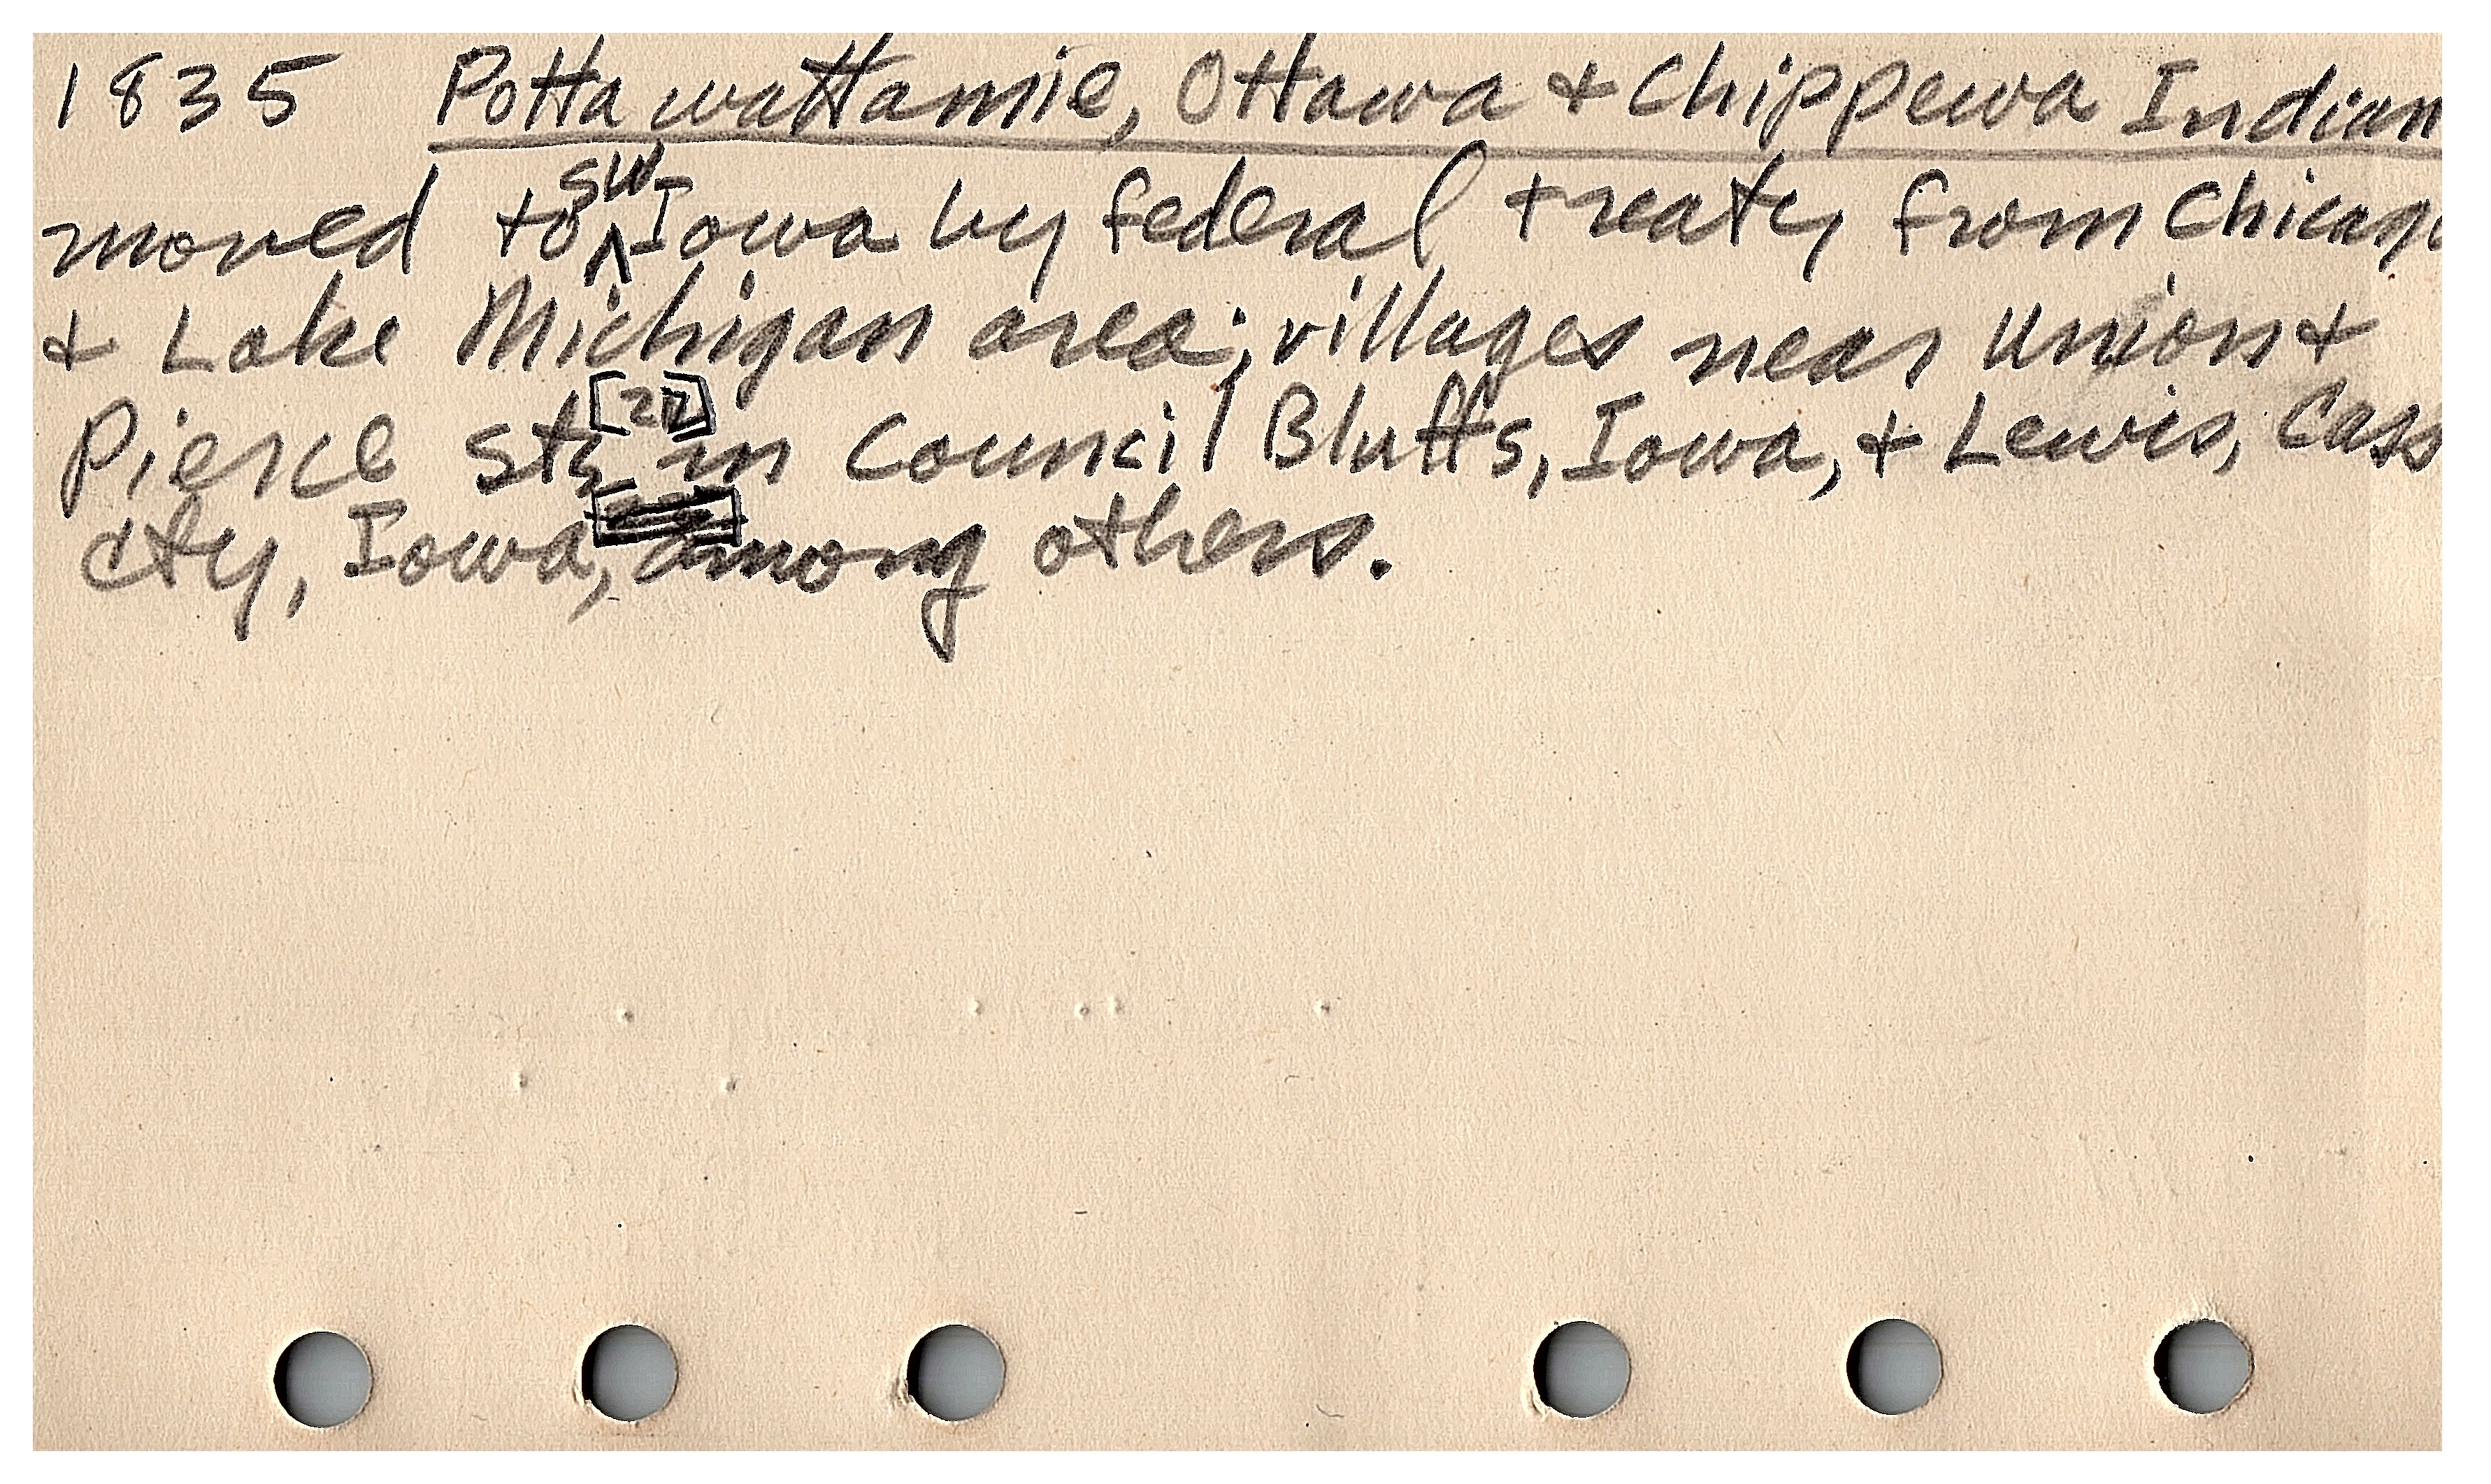 1835 Pottawattamie, Ottawa + Chippewa Indian
moved to SW Iowa by federal treaty from Chicago
+ Lake Michigan area; villages near Union +
Pierce sts in Council Bluffs, Iowa, + Lewis, Cass
cty, Iowa, among others.